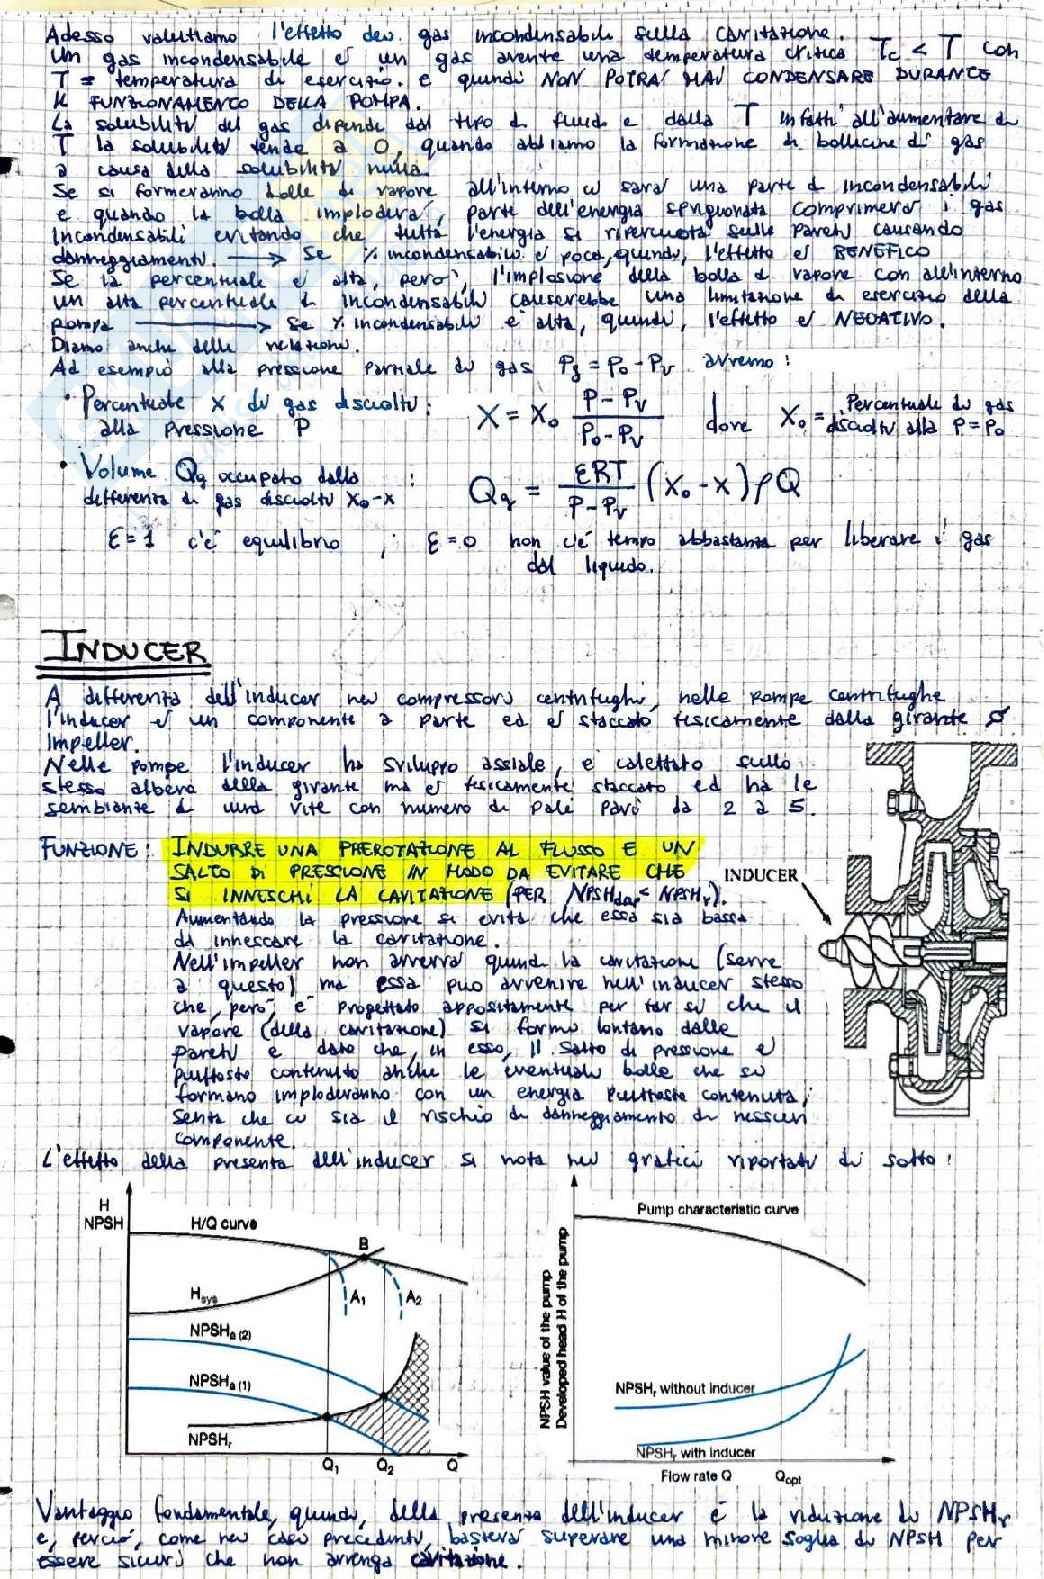 Adesso valutiamo l'effetto dei gas incondensabili sulla cavitazione.
Un gas incondensabile è un gas avente una temperatura critica Tc < T con
T = temperatura di esercizio. e quindi NON POTRA' MAI CONDENSARE DURANTE
IL FUNZIONAMENTO DELLA POMPA.
La solubilità del gas dipende dal tipo di fluido e dalla T infatti all'aumentare di
T la solubilità tende a 0, quando abbiamo la formazione di bollicine di gas
a causa della solubilità nulla.
Se si formeranno bolle di vapore all'interno ci sarà una parte di incondensabili
e quando la bolla imploderà, parte dell'energia sprigionata comprimerà i gas
incondensabili evitando che tutta l'energia si ripercuota sulle pareti causando
danneggiamenti. → Se % incondensabili è poca, quindi, l'effetto è BENEFICO
Se la percentuale è alta, però, l'implosione della bolla di vapore con all'interno
un alta percentuale di incondensabili causerebbe una limitazione di esercizio della
pompa → Se % incondensabili è alta, quindi, l'effetto è NEGATIVO.
Diamo anche delle relazioni.
Ad esempio alla pressione parziale di gas Pg = P0 - Pv avremo :
• Percentuale x di gas disciolti : X = X0 (P - Pv)/(P0 - Pv) dove X0 = Percentuale di gas
alla pressione P disciolti alla P = P0
• Volume Qg occupato dalla : Qg = εRT/(P - Pv) (X0 - x) ρQ
differenza di gas disciolti X0 - x
ε = 1 c'è equilibrio ; ε = 0 non c'è tempo abbastanza per liberare i gas
dal liquido.
INDUCER
A differenza dell'inducer nei compressori centrifughi, nelle pompe centrifughe
l'inducer è un componente a parte ed è staccato fisicamente dalla girante o
impeller.
Nelle pompe l'inducer ha sviluppo assiale, è calettato sullo
stesso albero della girante ma è fisicamente staccato ed ha le
sembianze di una vite con numero di pale pari da 2 a 5.
FUNZIONE : INDURRE UNA PREROTAZIONE AL FLUSSO E UN
SALTO DI PRESSIONE IN MODO DA EVITARE CHE
SI INNESCHI LA CAVITAZIONE (PER NPSHdis < NPSHr).
INDUCER
Aumentando la pressione si evita che essa sia bassa
da innescare la cavitazione.
Nell'impeller non avverrà quindi la cavitazione (serve
a questo) ma essa può avvenire nell'inducer stesso
che, però, è progettato appositamente per far sì che il
vapore (della cavitazione) si formi lontano dalle
pareti e dato che, in esso, il salto di pressione è
piuttosto contenuto anche le eventuali bolle che si
formano imploderanno con un energia piuttosto contenuta,
senza che ci sia il rischio di danneggiamento di nessun
componente.
L'effetto della presenza dell'inducer si nota nei grafici riportati di sotto :
H
NPSH
H/Q curve
B
Hsys
A1
A2
NPSHa (2)
NPSHa (1)
NPSHr
Q1
Q2
Q
NPSH value of the pump
Developed head H of the pump
Pump characteristic curve
NPSHr without inducer
NPSHr with inducer
Flow rate Q
Qopt
Vantaggio fondamentale, quindi, della presenza dell'inducer è la riduzione di NPSHr
e, perciò, come nei casi precedenti, basterà superare una minore soglia di NPSH per
essere sicuri che non avvenga cavitazione.